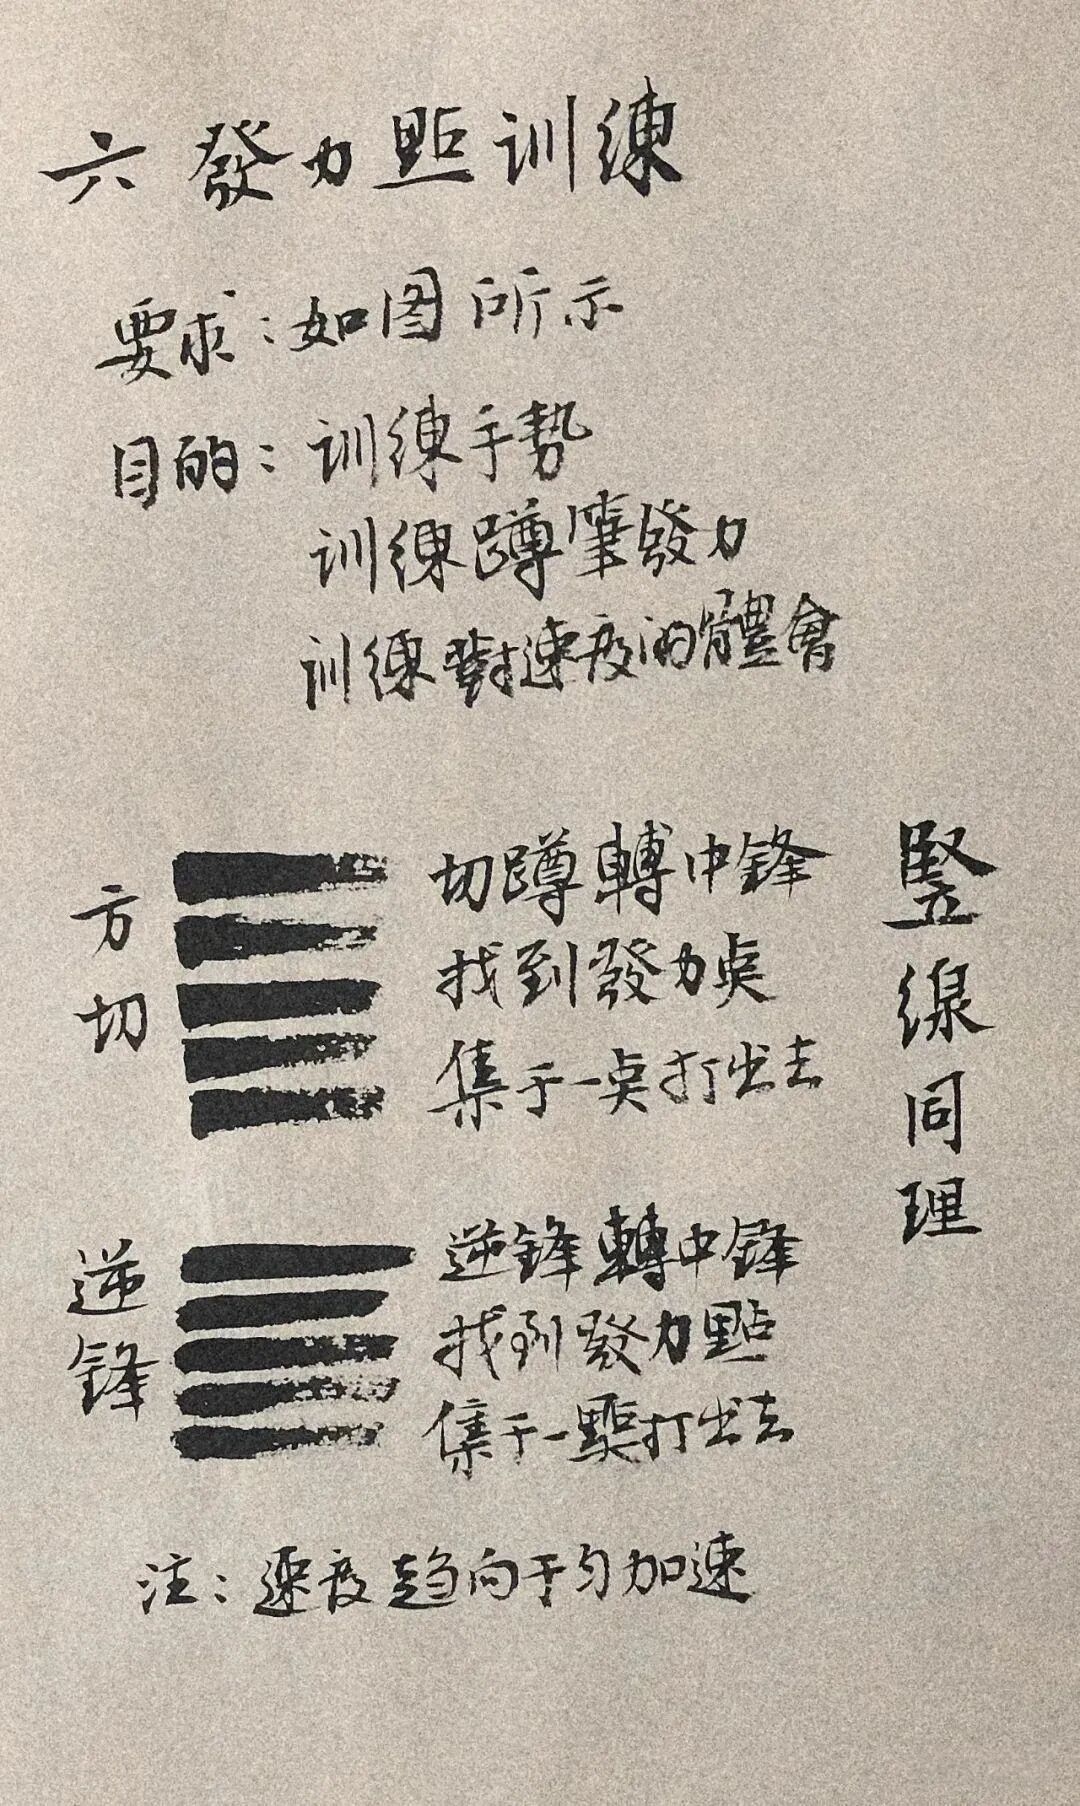 六 發力點训練
要求：如图所示
目的：训練手勢
训練蹲筆發力
训練對速度的體會
方切
切蹲轉中鋒
找到發力点
集于一点打出去
逆鋒
逆鋒轉中鋒
找到發力點
集于一點打出去
竖線同理
注：速度趋向于匀加速